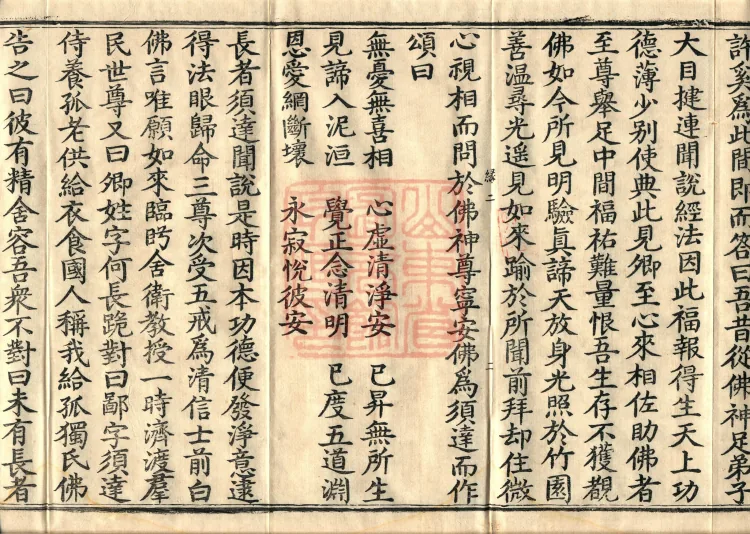 許奚爲此間即而答曰吾昔從佛神足弟子
大目揵連聞說經法因此福報得生天上功
德薄少別使典此見卿至心來相佐助佛者
至尊舉足中間福祐難量恨吾生存不獲覩
佛如今所見明驗眞諦天放身光照於竹園
善溫尋光遥見如來踰於所聞前拜却住微
心視相而問於佛神尊寧安佛爲須達而作
頌曰
無憂無喜相 心虛清淨安 已昇無所生
見諦入泥洹 覺正念清明 已度五道淵
恩愛網斷壞 永寂恱彼安
長者須達聞說是時因本功德便發淨意逮
得法眼歸命三尊次受五戒爲清信士前白
佛言唯願如來臨眄舍衛教授一時濟渡羣
民世尊又曰卿姓字何長跪對曰鄙字須達
侍養孤老供給衣食國人稱我給孤獨氏佛
告之曰彼有精舍容吾衆不對曰未有長者